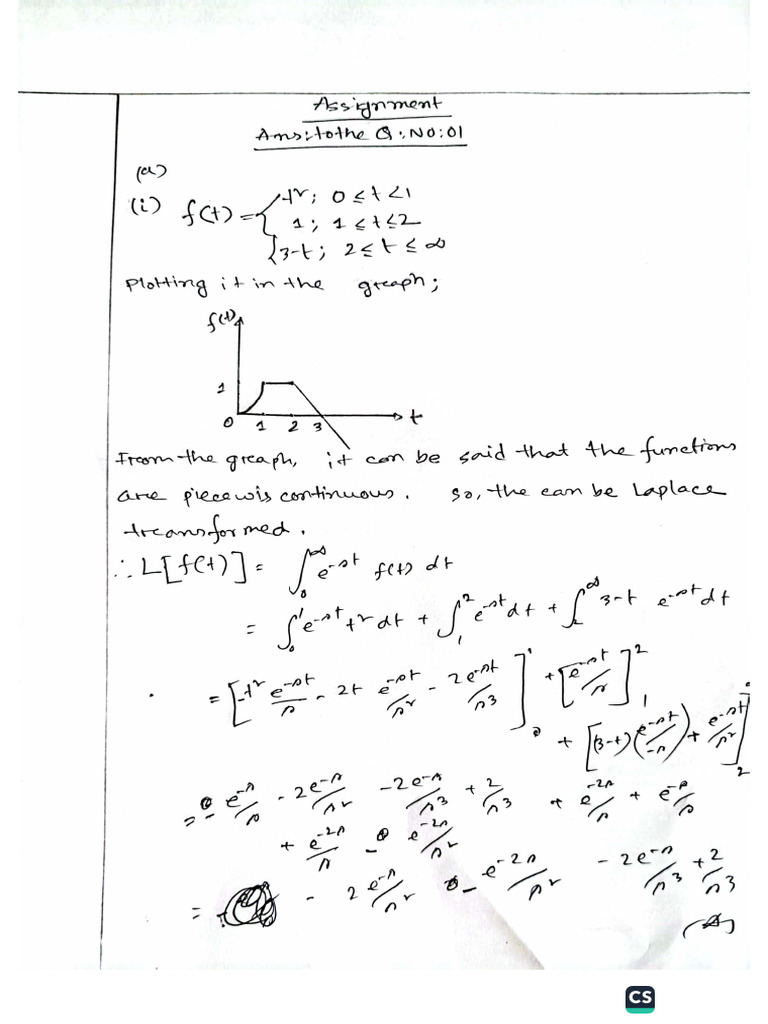 Assignment
Ans: to the Q: NO: 01
(a)
(i) f(t) = { t²; 0 ≤ t < 1
1; 1 ≤ t ≤ 2
3-t; 2 ≤ t ≤ ∞
Plotting it in the graph;
f(t)
1
0 1 2 3 t
From the graph, it can be said that the functions
are piecewis continuous. so, the can be Laplace
transformed.
∴ L[f(t)] = ∫₀^∞ e^-st f(t) dt
= ∫₀^1 e^-st t² dt + ∫₁^2 e^-st dt + ∫₂^∞ 3-t e^-st dt
= [-t² e^-st/s - 2t e^-st/s² - 2e^-st/s³]₀^1 + [e^-st/s]₁^2
+ [(3-t)(e^-st/-s) + e^-st/s²]₂
= - e^-s/s - 2e^-s/s² - 2e^-s/s³ + 2/s³ + e^-2s/s + e^-s/s
+ e^-2s/s - e^-2s/s²
= - 2 e^-s/s² - e^-2s/s² - 2e^-s/s³ + 2/s³
(A)
CS